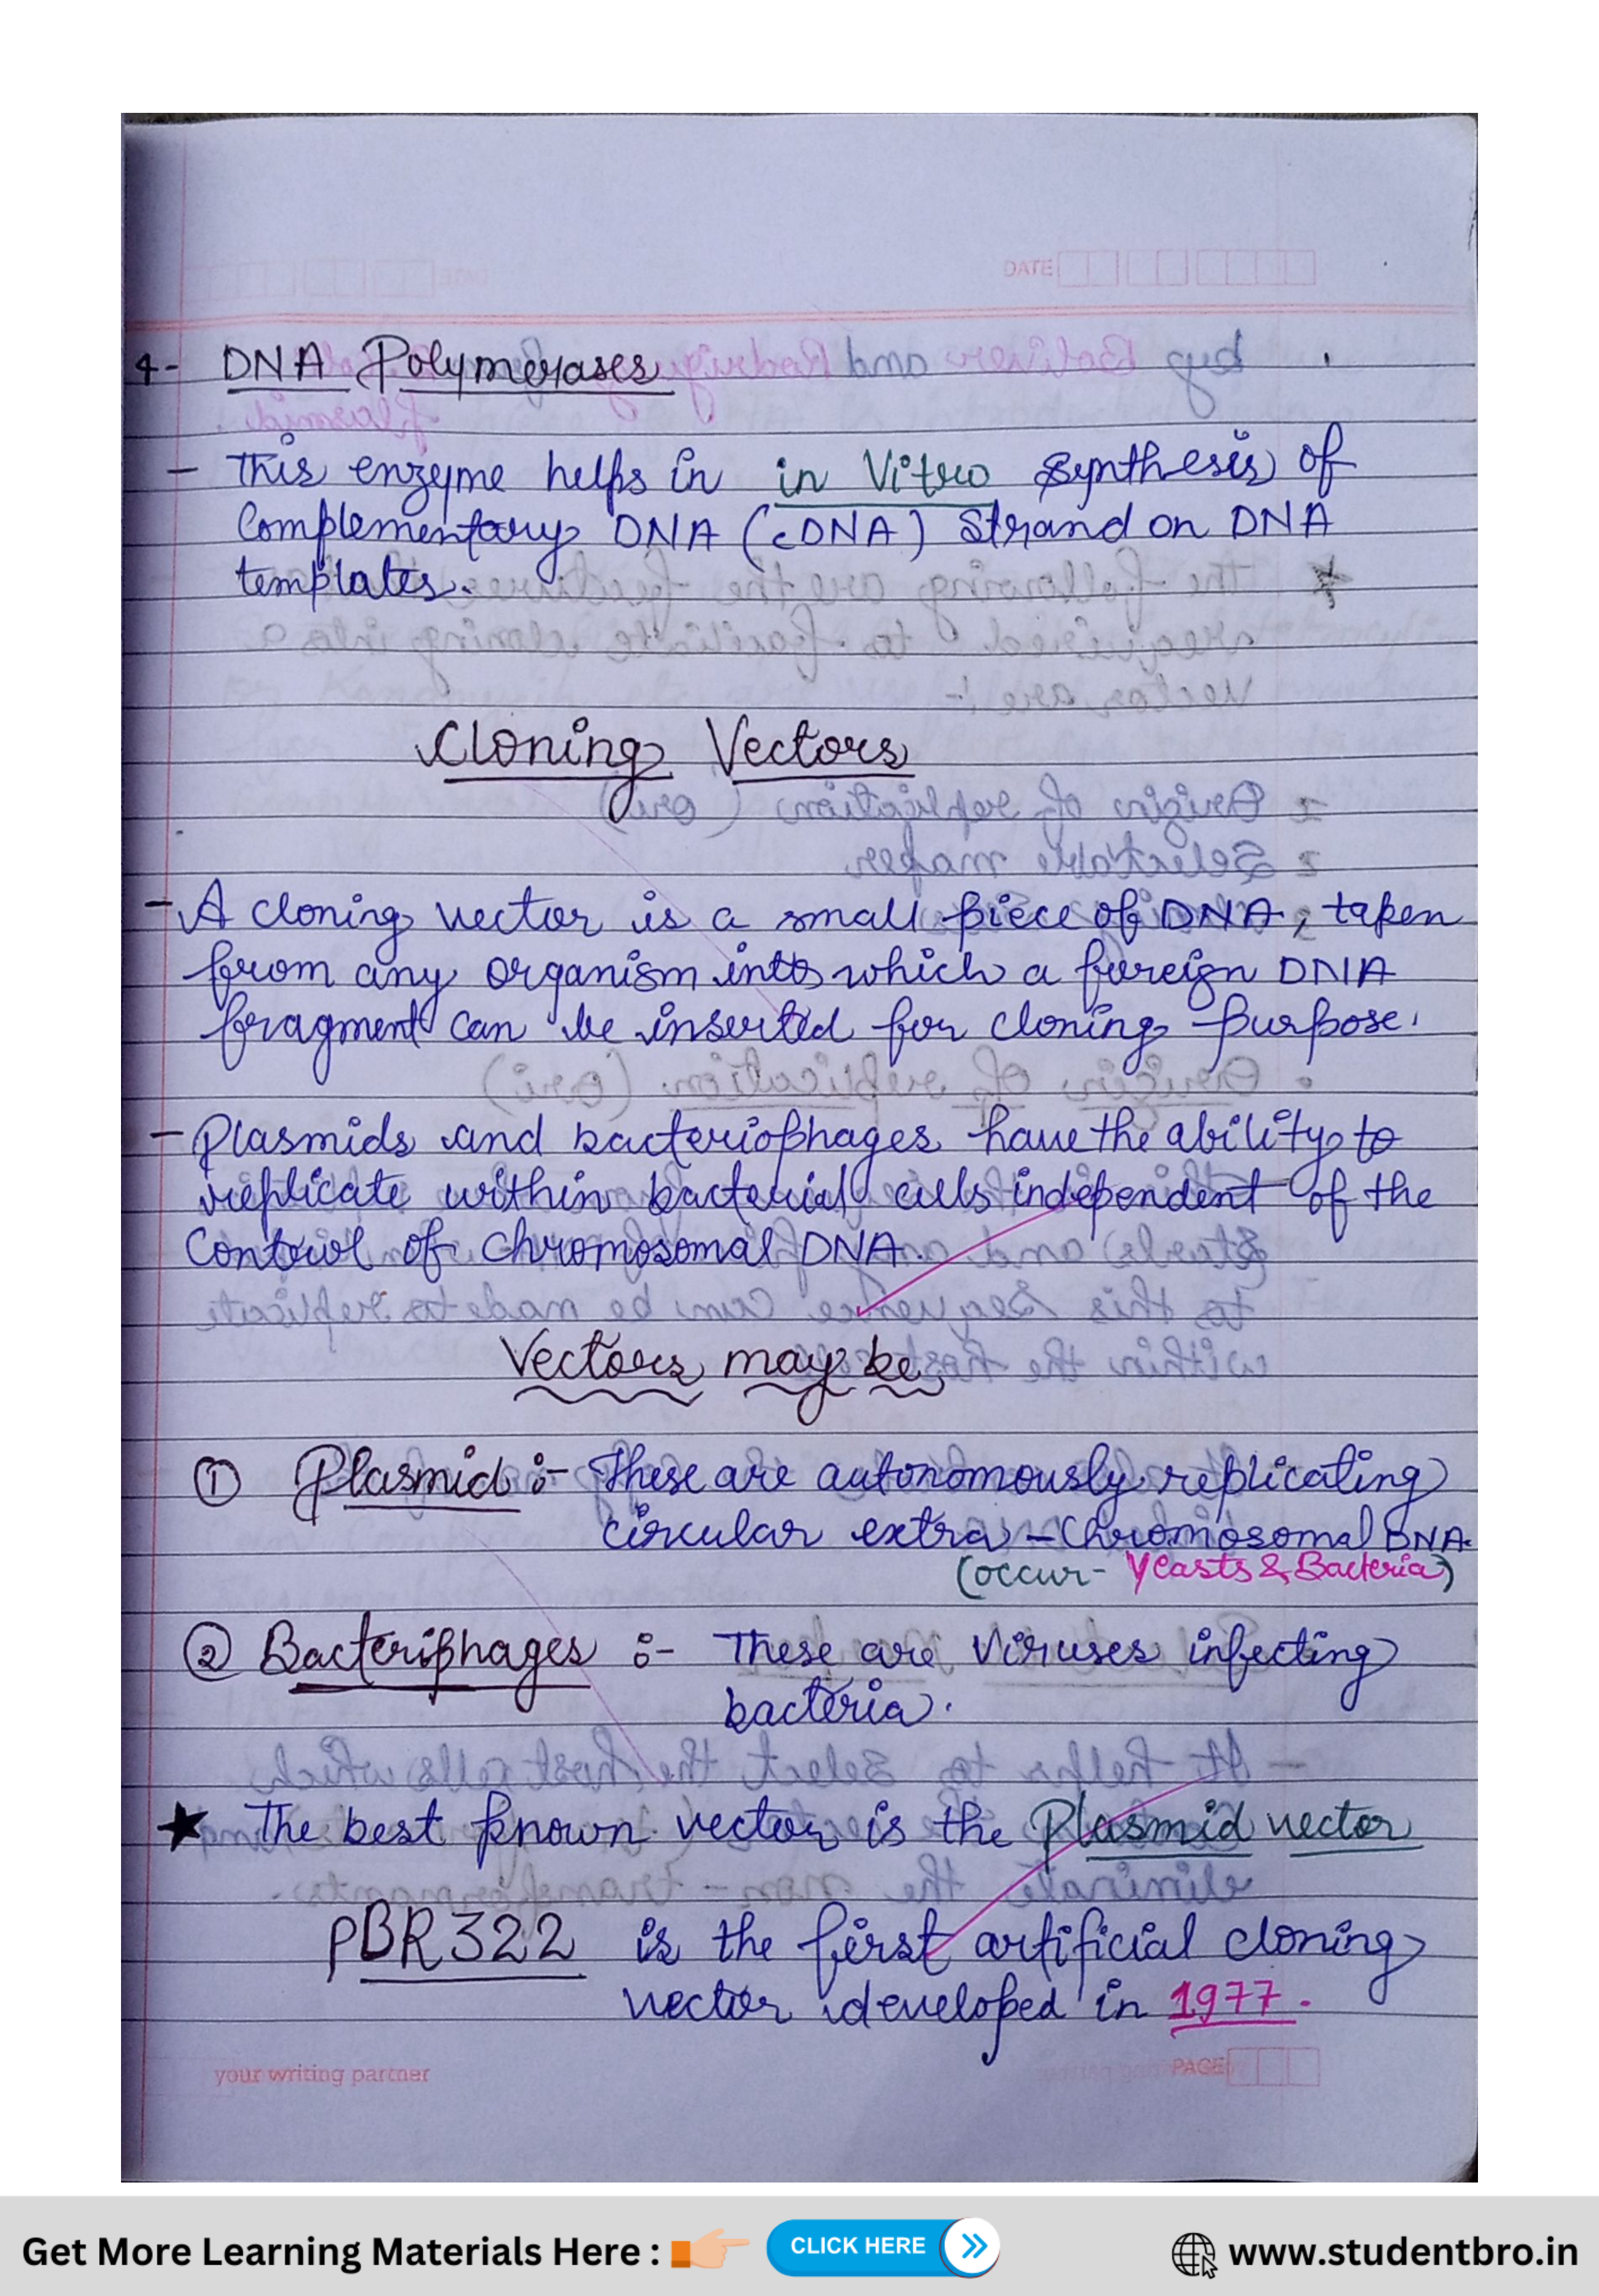 DATE
4- DNA Polymerases
- This enzyme helps in in Vitro synthesis of
Complementary DNA (cDNA) Strand on DNA
templates.
Cloning Vectors
- A cloning vector is a small piece of DNA, taken
from any organism into which a foreign DNA
fragment can be inserted for cloning purpose.
- Plasmids and bacteriophages have the ability to
replicate within bacterial cells independent of the
Control of chromosomal DNA.
Vectors may be
① Plasmid :- These are autonomously replicating
circular extra-Chromosomal DNA.
(occur- Yeasts & Bacteria)
② Bacteriphages :- These are Viruses infecting
bacteria.
★ The best known vector is the Plasmid vector
pBR322 is the first artificial cloning
vector developed in 1977.
your writing partner
PAGE
Get More Learning Materials Here :
CLICK HERE
www.studentbro.in